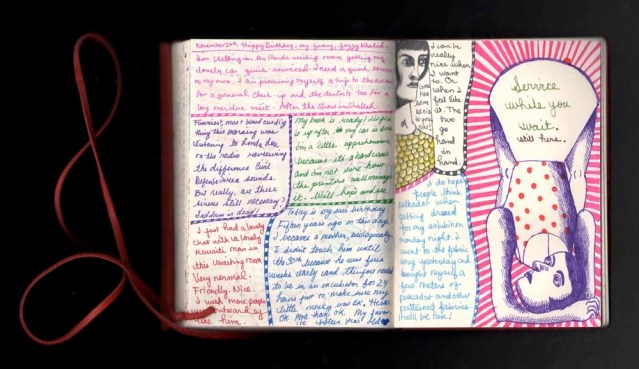 November 24th. Happy Birthday, my funny, fuzzy Khaled.
I'm sitting in the Honda waiting room getting my
lovely car quick serviced. I need a quick service
of my own. I am promising myself a trip to the doctor
for a general check-up and the dentist's too for a
long overdue visit. After the show inshallah.
Funniest, most blood curdling
thing this morning was
listening to
on the radio reviewing
the difference Civil
Defense siren sounds.
But really, are these
sirens still necessary?
Saddam is dead.
My book is ready! I'll pick
it up after my car is done.
I'm a little apprehensive
because it's a hard cover
and I'm not sure how
the printers will manage
it. Will hope and see.
I just had a lovely
chat with a lovely
Kuwaiti man in
this waiting room.
Very normal.
Friendly. Nice.
I wish more people
were
like him.
Today is my son's birthday.
Fifteen years ago on this day
I became a mother, biologically.
I didn't touch him until
the 30th because he was five
weeks early and therefore needed
to be in an incubator for 24
hours just to make sure my
little monkey was OK. He's
OK. More than OK. My funny
fifteen year old ♥
I can be
really
nice when
I want
to. Or
when I
feel like
it. The
two
go
hand
in
hand.
I do hope
people think
polkadot when
getting dressed
for my exhibition
Sunday night. I
went to the fabric
yesterday and
bought myself a
few meters of
polkadot and other
patterned fabrics.
It will be fun!
Service
while you
wait.
Still here.